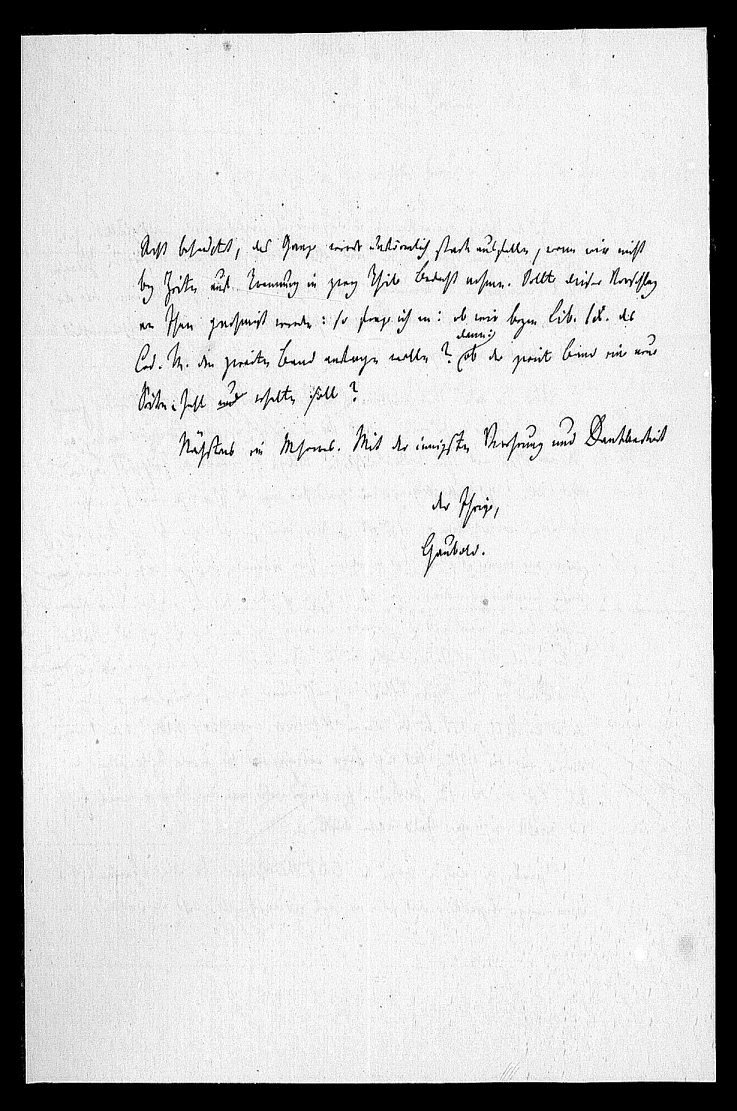 Acht befürchtet, das Ganze werde unförmlich stark ausfallen, wenn wir nicht
bey Zeiten auf Trennung in zwey Theile Bedacht nehmen. Sollte dieser Vorschlag
von Ihnen genehmigt werden: so frage ich an: ob wir beym Lib. IX. des
Cod. Th. den zweiten Band anfangen wollen? ob der zweite Band eine neue
dann
Seitenzahl erhalten soll?
Nächstens ein Mehreres. Mit der innigsten Verehrung und Dankbarkeit
der Ihrige,
Haubold.